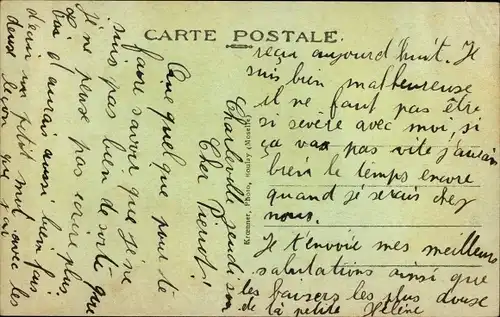 CARTE POSTALE
Charleville jeudi soir
Cher Pierrot!
Que quelque pour te
faire savoir que je ne
suis pas bien de sorte que
je ne pense pas écrire plus.
aurais aussi bien fais
d'écrir un petit mot avec les
deux leçon que j'ai
reçu aujourd'huit. Je
suis bien malheureuse
il ne faut pas être
si severe avec moi, si
ça va pas vite j'aurais
bien le temps encore
quand je serais chez
nous.
Je t'envoie mes meilleurs
salutations ainsi que
les baisers les plus douse
de la petite Hélène
Kraemer, Photo, Boulay (Moselle)